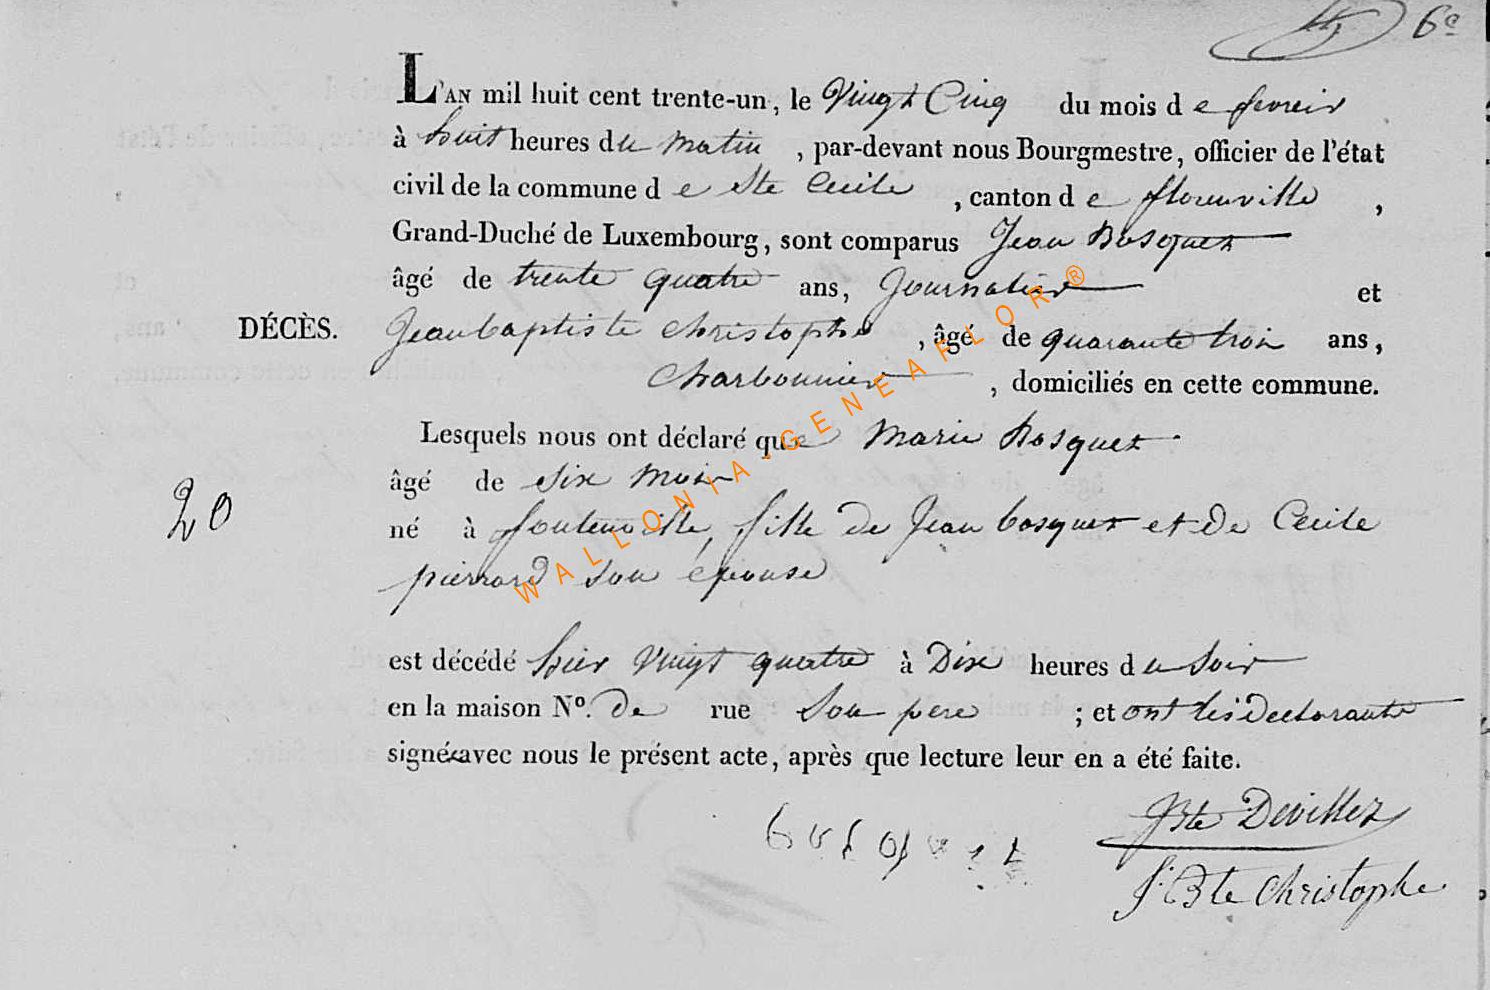 6e
L'AN mil huit cent trente-un, le Vingt Cinq du mois de fevreir
à huit heures du matin, par-devant nous Bourgmestre, officier de l'état
civil de la commune de Ste Cecile, canton de florenville,
Grand-Duché de Luxembourg, sont comparus Jean Bosquet
âgé de trente quatre ans, Journalier et
DÉCÈS. Jean baptiste christophe, âgé de quarante troi ans,
charbonnier, domiciliés en cette commune.
Lesquels nous ont déclaré que Marie Bosquet
âgé de six mois
20
né à fontenoille, fille de Jean bosquet et de Cecile
pierrard son épouse
est décédé hier vingt quatre à Dix heures du soir
en la maison N°. de rue son pere ; et ont les declarants
signés avec nous le présent acte, après que lecture leur en a été faite.
JBte Devillez
J. Bte Christophe
WALLONIA-GENEAFLOR®